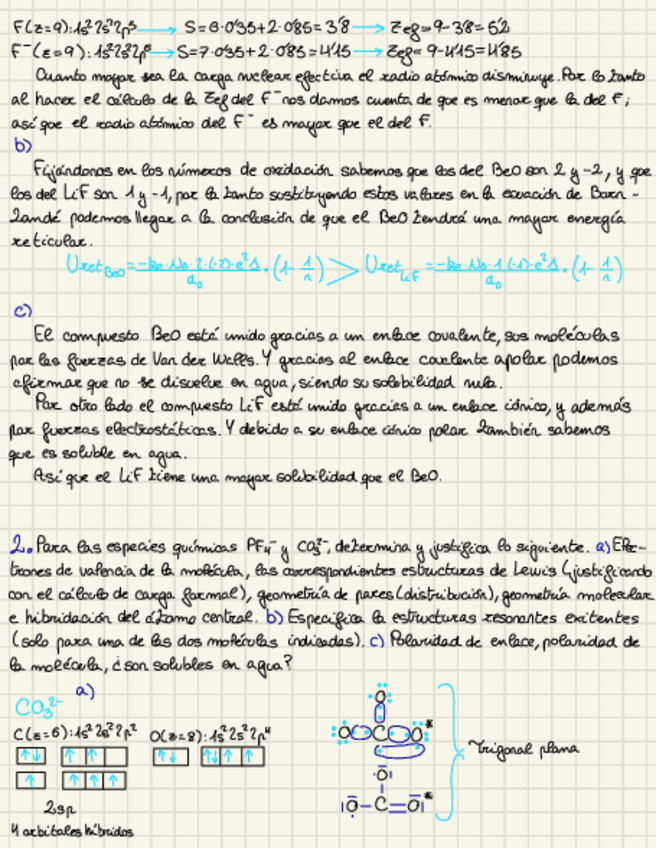 F(z=9):1s²2s²2p⁵ → S=6·0'35+2·0'85=3'8 → Zef=9-3'8=5'2
F⁻(z=9):1s²2s²2p⁶ → S=7·0'35+2·0'85=4'15 → Zef=9-4'15=4'85
Cuanto mayor sea la carga nuclear efectiva el radio atómico disminuye. Por lo tanto
al hacer el cálculo de la Zef del F⁻ nos damos cuenta de que es menor que la del F;
así que el radio atómico del F⁻ es mayor que el del F.
b)
Fijándonos en los números de oxidación sabemos que los del BeO son 2 y -2, y que
los del LiF son 1 y -1, por la tanto sustituyendo estos valores en la ecuación de Born-
Landé podemos llegar a la conclusión de que el BeO tendrá una mayor energía
reticular.
Uret BeO = -ke·No·2·(-2)·e²A/d₀ · (1 - 1/n) > Uret LiF = -ke·No·1·(-1)·e²A/d₀ · (1 - 1/n)
c)
El compuesto BeO está unido gracias a un enlace covalente, sus moléculas
por las fuerzas de Van der Walls. Y gracias al enlace covalente apolar podemos
afirmar que no se disuelve en agua, siendo su solubilidad nula.
Por otro lado el compuesto LiF está unido gracias a un enlace iónico, y además
por fuerzas electrostáticas. Y debido a su enlace iónico polar también sabemos
que es soluble en agua.
Así que el LiF tiene una mayor solubilidad que el BeO.
2. Para las especies químicas PF₄⁻ y CO₃²⁻, determina y justifica lo siguiente. a) Elec-
trones de valencia de la molécula, las correspondientes estructuras de Lewis (justificando
con el cálculo de carga formal), geometría de pares (distribución), geometría molecular
e hibridación del átomo central. b) Especifica la estructuras resonantes exitentes
(solo para una de las dos moléculas indicadas). c) Polaridad de enlace, polaridad de
la molécula, ¿son solubles en agua?
a)
CO₃²⁻
C(z=6):1s²2s²2p² O(z=8):1s²2s²2p⁴
O
O C O*
Trigonal plana
O
O-C=O*
2sp
4 orbitales híbridos